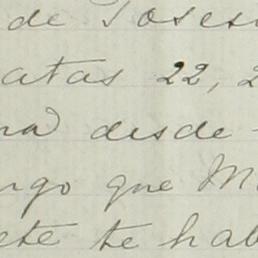 de Jose
atas 22, 2
na desde
ngo que M
ete te hab